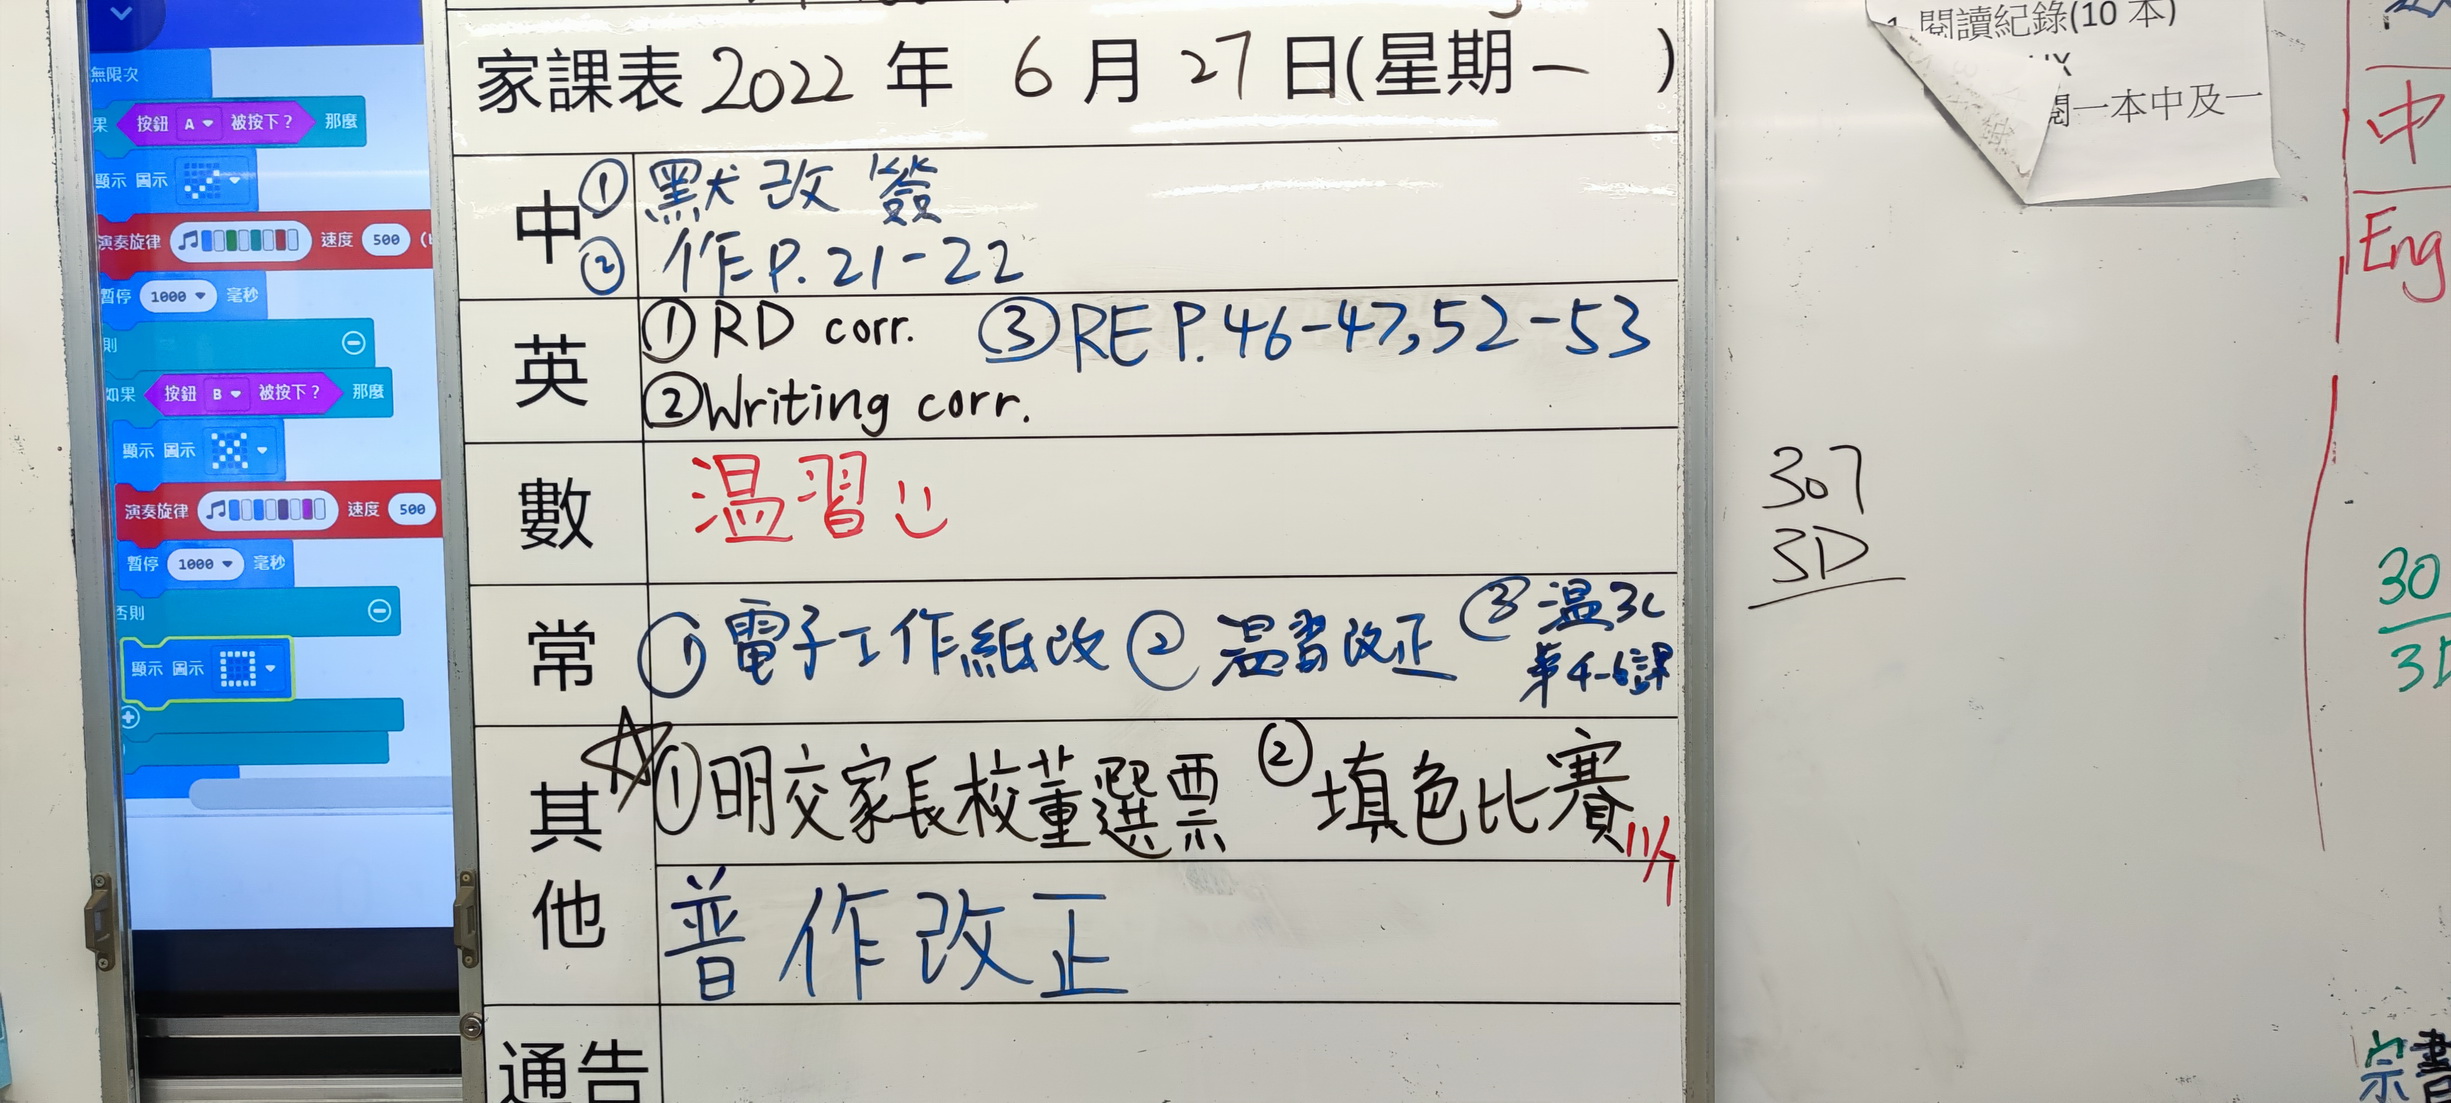 無限次
果 按鈕 A 被按下？ 那麼
顯示 圖示
演奏旋律 速度 500
暫停 1000 毫秒
則
如果 按鈕 B 被按下？ 那麼
顯示 圖示
演奏旋律 速度 500
暫停 1000 毫秒
否則
顯示 圖示
家課表 2022 年 6 月 27 日(星期一 )
中 ① 默改簽
② 作 P. 21-22
英 ① RD corr. ③ RE P. 46-47, 52-53
② Writing corr.
數 温習
常 ① 電子工作紙改 ② 温習改正 ③ 温3C
第4-6課
其他 ① 明交家長校董選票 ② 填色比賽 11/7
普作改正
通告
1. 閱讀紀錄(10 本)
閱一本中及一
307
3D
中
Eng
30
3D